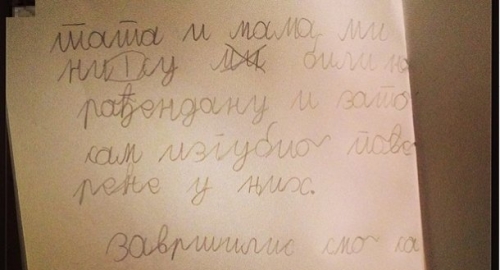 тата и мама ми
нису ми били на
рођендану и зато
сам изгубио пове
рење у њих.
завршили смо са